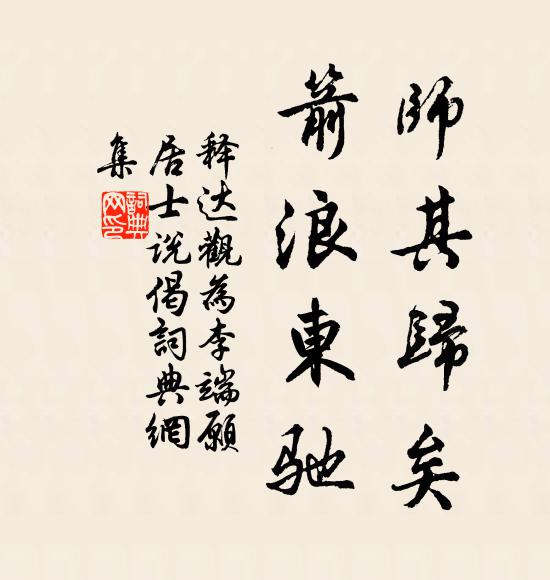 師其歸矣
箭浪東馳
释达觀為李端愿
居士说偈詞典網
集
詞典網印